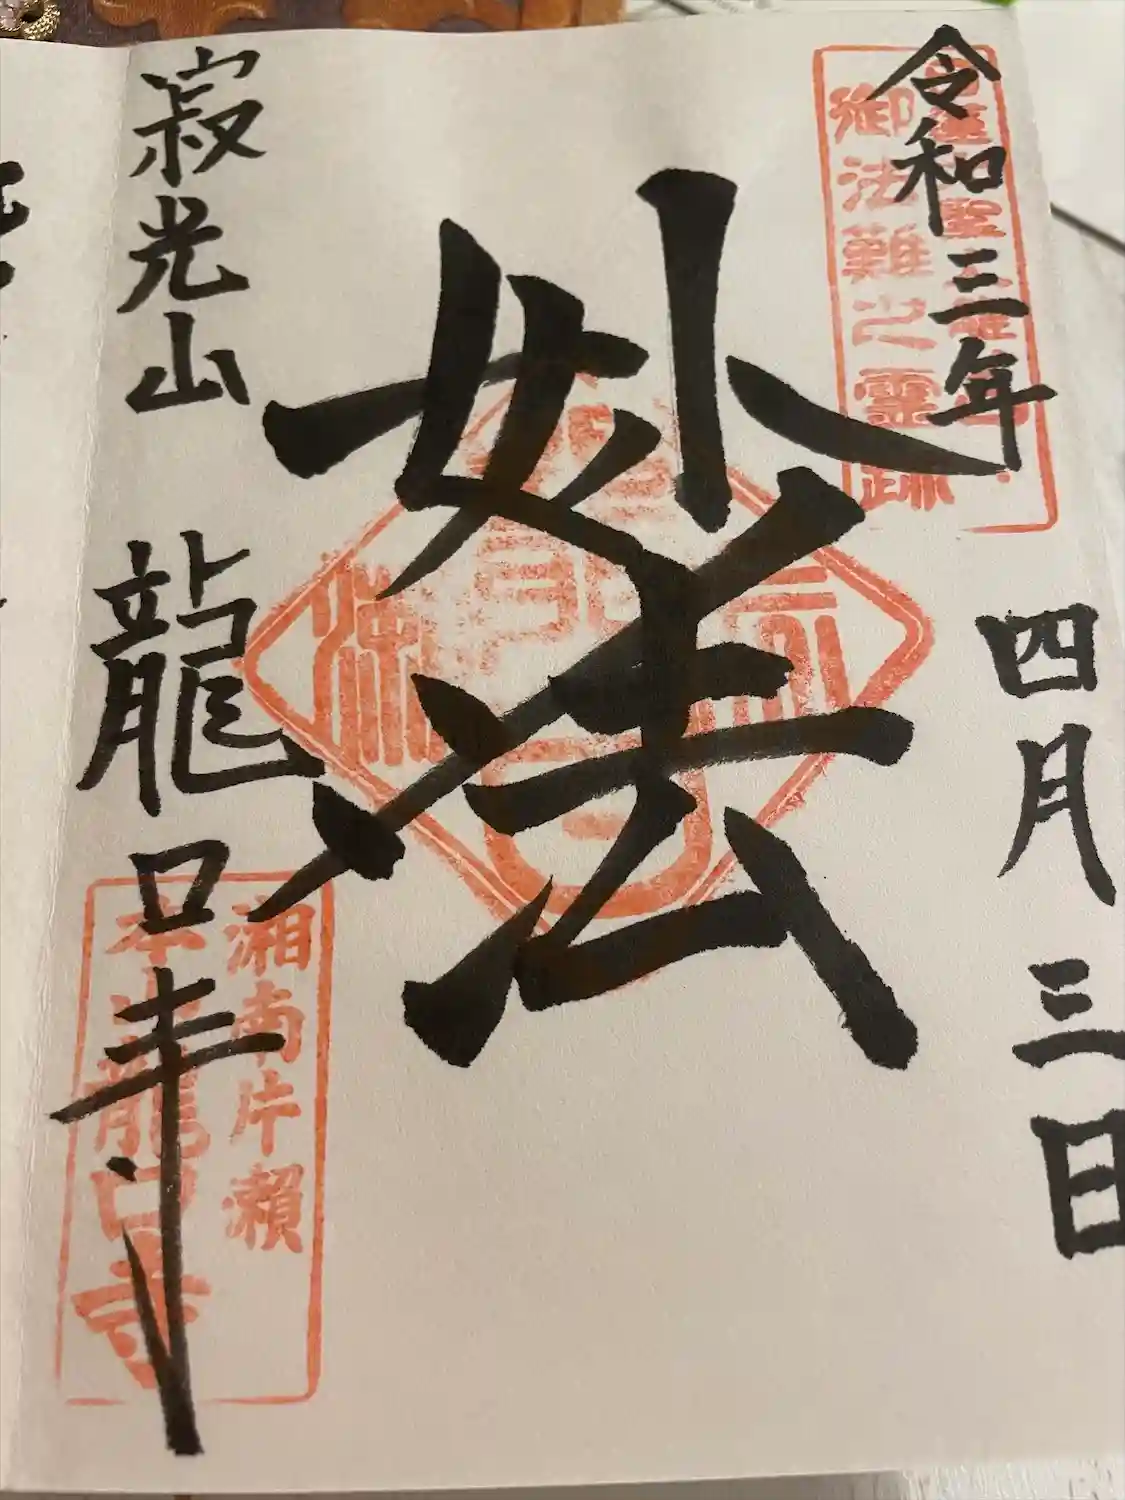 令和三年四月三日
御法難之霊跡
妙法
寂光山龍口寺
湘南片瀬
本山龍口寺